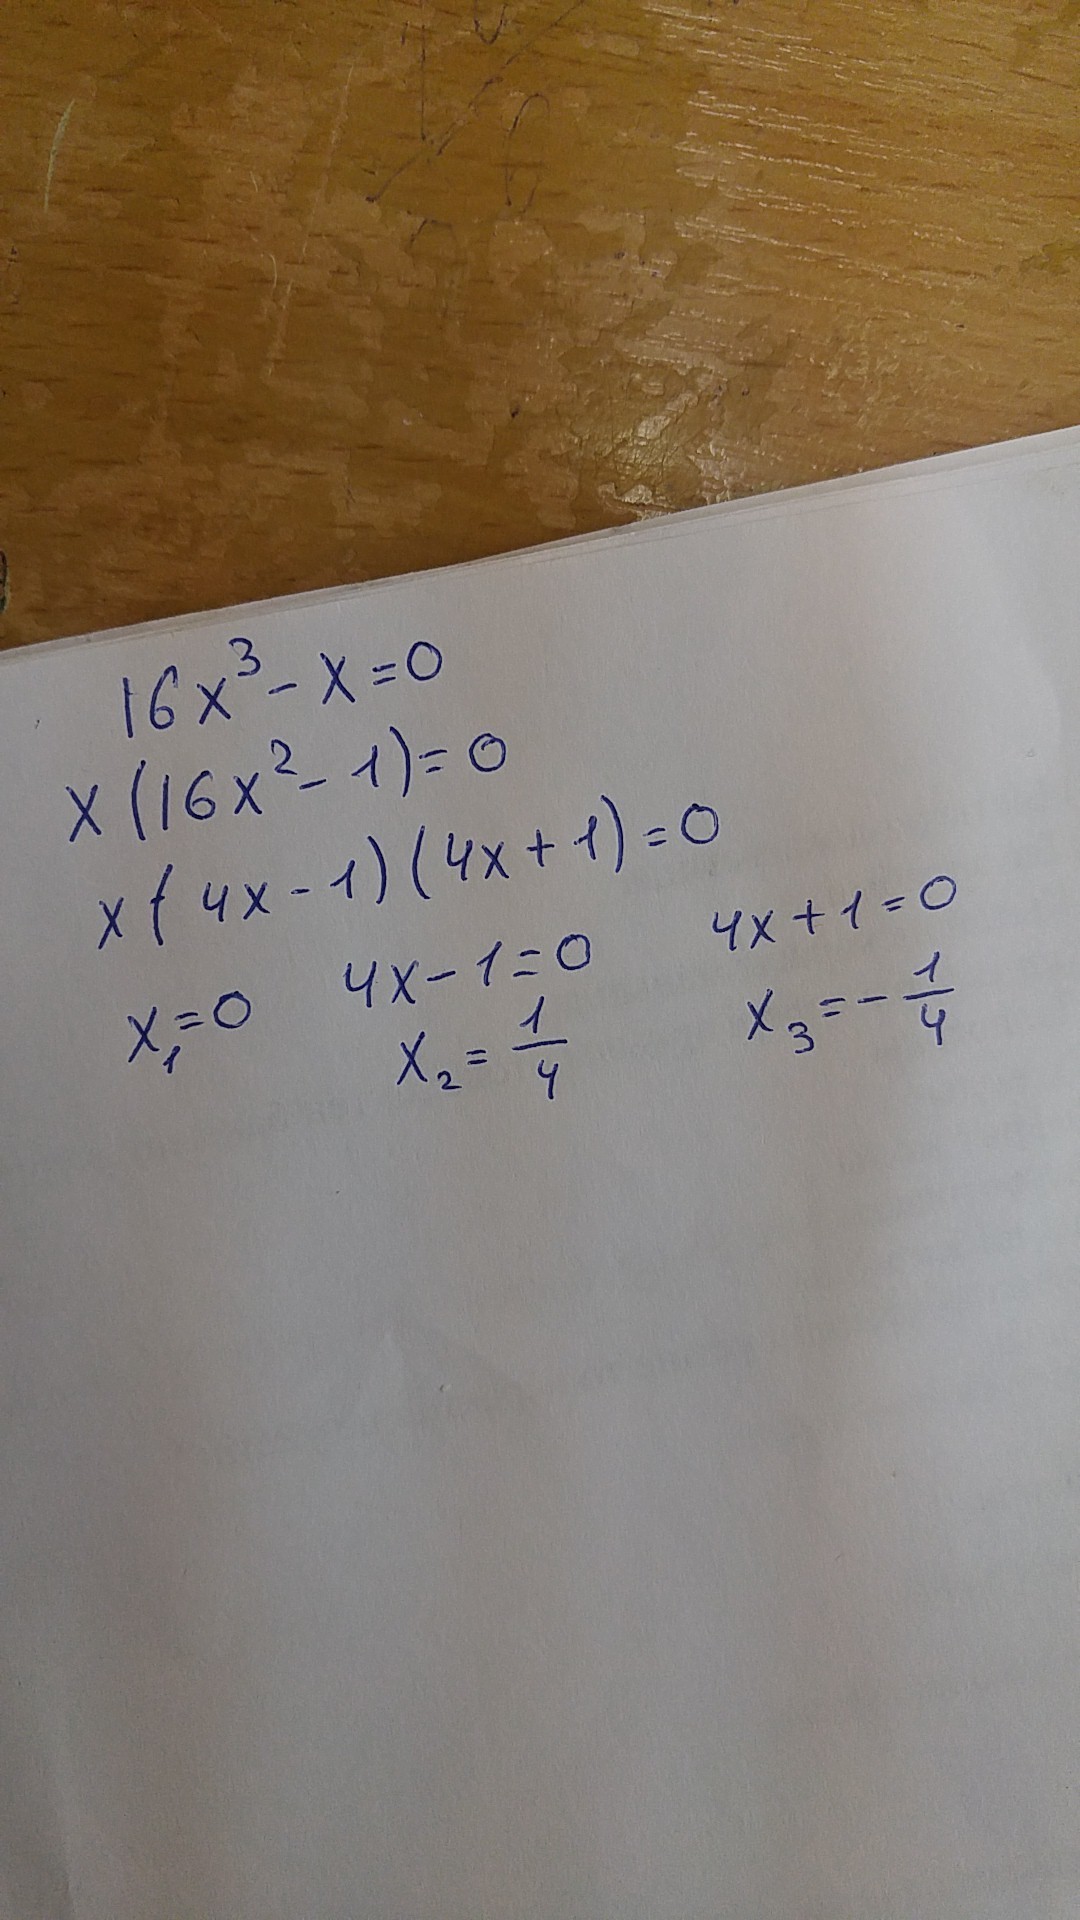 16x³ - x = 0
x(16x² - 1) = 0
x(4x - 1)(4x + 1) = 0
x₁ = 0 4x - 1 = 0 4x + 1 = 0
x₂ = 1/4 x₃ = - 1/4